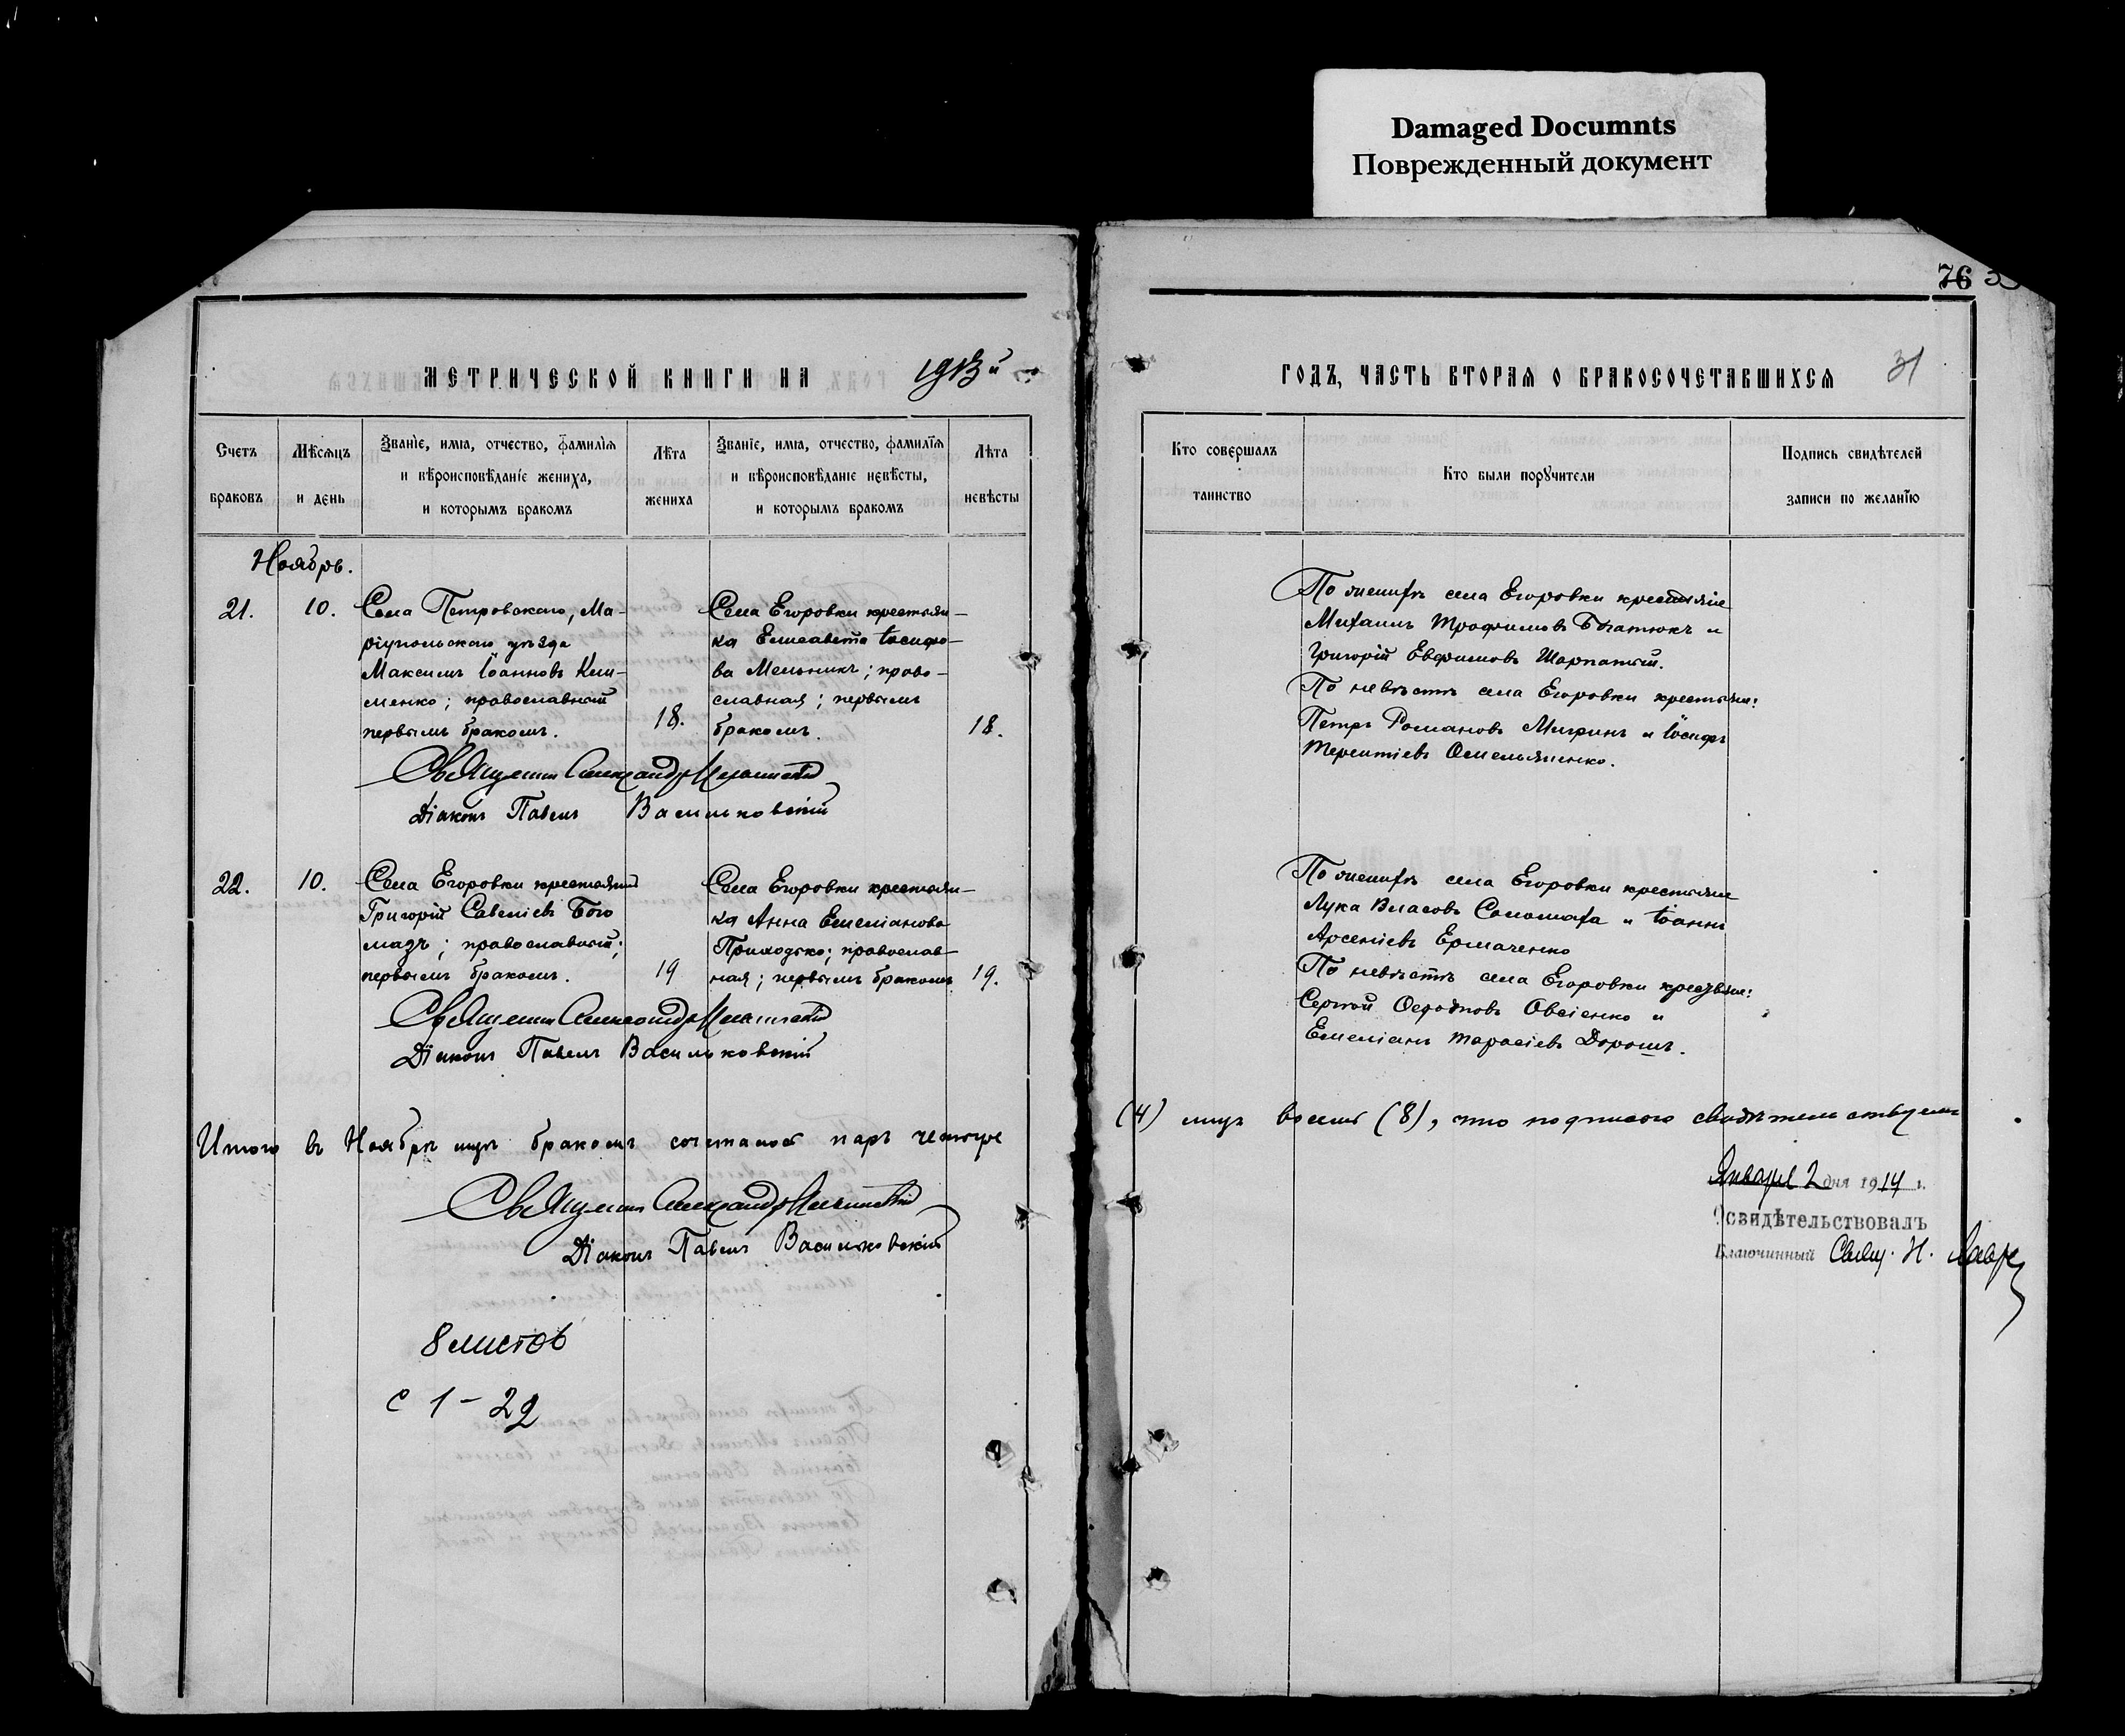 Damaged Documnts
Поврежденный документ
76
МЕТРИЧЕСКОЙ КНИГИ НА 1913й
Счетъ браковъ
Мѣсяцъ и день
Званіе, имя, отчество, фамилія
и вѣроисповѣданіе жениха,
и которымъ бракомъ
Лѣта жениха
Званіе, имя, отчество, фамилія
и вѣроисповѣданіе невѣсты,
и которымъ бракомъ
Лѣта невѣсты
Ноябрь.
21.
10.
Села Петровскаго, Ма-
ріупольскаго уѣзда
Максимъ Іоанновъ Кли-
менко; православный
первымъ бракомъ.
18.
Села Егоровки крестьян-
ка Елисавета Іосифо-
ва Мельникъ; право-
славная; первымъ
бракомъ.
18.
Священникъ Александръ
Діаконъ Павелъ Васильковскій
22.
10.
Села Егоровки крестьянинъ
Григорій Савеліевъ Бого
мазъ; православный;
первымъ бракомъ.
19
Села Егоровки крестьян-
ка Анна Емеліанова
Приходько; православ-
ная; первымъ бракомъ
19.
Священникъ Александръ
Діаконъ Павелъ Васильковскій
Итого въ Ноябрѣ мцѣ бракомъ сочеталось паръ четыре
Священникъ Александръ
Діаконъ Павелъ Васильковскій
8 листов
с 1 - 22
ГОДЪ, ЧАСТЬ ВТОРАЯ О БРАКОСОЧЕТАВШИХСЯ
31
Кто совершалъ
таинство
Кто были поручители
Подпись свидѣтелей
записи по желанію
По женихѣ села Егоровки крестьяне
Михаилъ Трофимовъ Богатюкъ и
Григорій Евфимовъ Шарпатый.
По невѣстѣ села Егоровки крестьяне:
Петръ Романовъ Мигринъ и Іосифъ
Терентіевъ Омельяненко.
По женихѣ села Егоровки крестьяне
Лука Власовъ Саломаха и Іоаннъ
Арсеніевъ Ермаченко
По невѣстѣ села Егоровки крестьяне:
Сергѣй Овсіенко и
Емеліанъ Тарасіевъ Дорошъ.
(4) лицъ восемь (8), что подписомъ свидѣтельствуемъ
Января 2 дня 1914 г.
Освидѣтельствовалъ
Благочинный Свящ. Н.